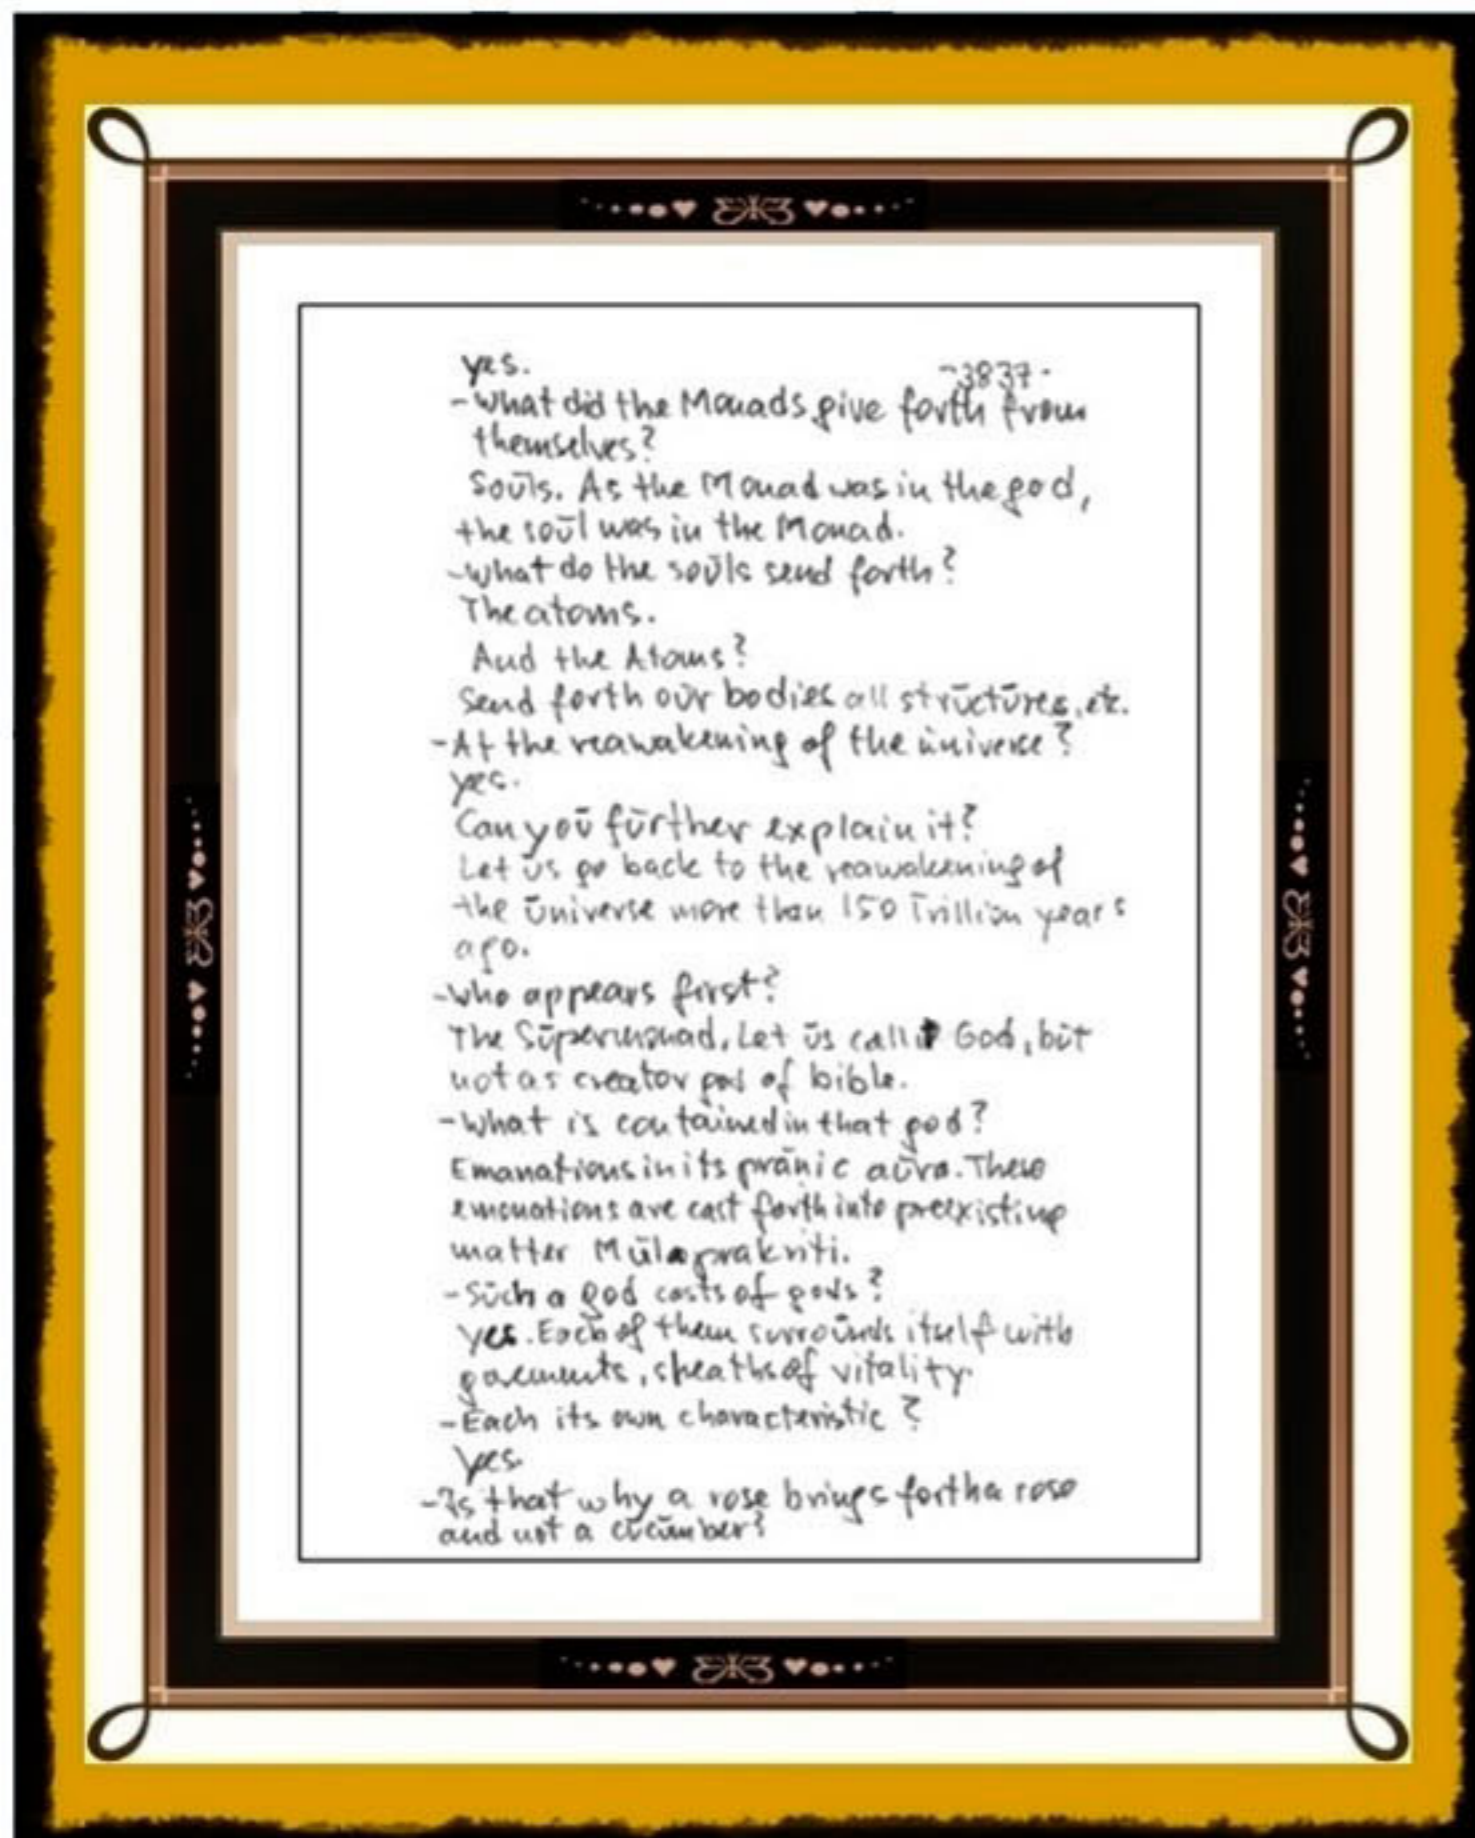 yes. -3837-
-What did the Monads give forth from
themselves?
Soūls. As the Monad was in the god,
the soūl was in the Monad.
-What do the soūls send forth?
The atoms.
And the Atoms?
Send forth oūr bodies all strūctūres, etc.
-At the reawakening of the ūniverse?
yes.
Can yoū fūrther explain it?
Let ūs go back to the reawakening of
the ūniverse more than 150 Trillion years
ago.
-Who appears first?
The Sūpermonad. Let ūs call it God, būt
not as creator god of bible.
-What is contained in that god?
Emanations in its prānic aūra. These
emanations are cast forth into preexisting
matter Mūlaprakriti.
-Sūch a god casts of gods?
yes. Each of them surroūnds itself with
garments, sheaths of vitality.
-Each its own characteristic?
Yes.
-Is that why a rose brings forth a rose
and not a cūcūmber?